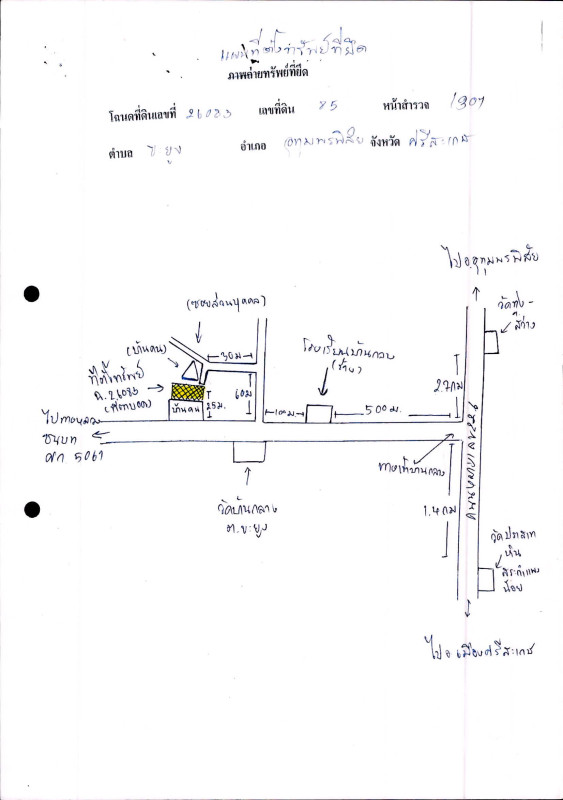 แผนที่ตั้งทรัพย์ที่ยึด
ภาพถ่ายทรัพย์ที่ยึด
โฉนดที่ดินเลขที่ 26083 เลขที่ดิน 85 หน้าสำรวจ 1907
ตำบล ขะยูง อำเภอ อุทุมพรพิสัย จังหวัด ศรีสะเกษ
ไป อ.อุทุมพรพิสัย
วัดทุ่ง-
สว่าง
(ซอยส่วนบุคคล)
(บ้านคน)
30 ม
โรงเรียนบ้านกลาง
(ซ้าย)
ที่ตั้งทรัพย์
ฉ.26083
บ้านคน
25ม.
60ม
100ม.
500ม.
2.7กม
ไปทางหลวง
ชนบท
ศก 5067
วัดบ้านกลาง
ต.ขะยูง
ทางเข้าบ้านกลาง
ถนนทางหลวง 226
1.4กม
วัดปราสาท
หิน
สระกำแพง
น้อย
ไป อ เมืองศรีสะเกษ